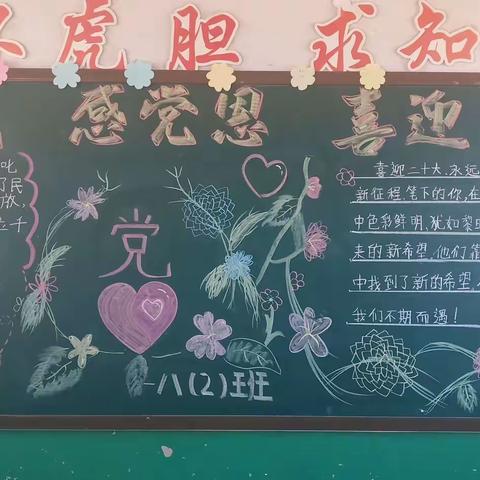 虎胆 求知
感党恩 喜迎
叱
了民
放,
千
党
八(2)班
喜迎二十大,永远
新征程,笔下的你,在
中色彩鲜明,犹如黎
来的新希望,他们靠
中找到了新的希望,
我们不期而遇!